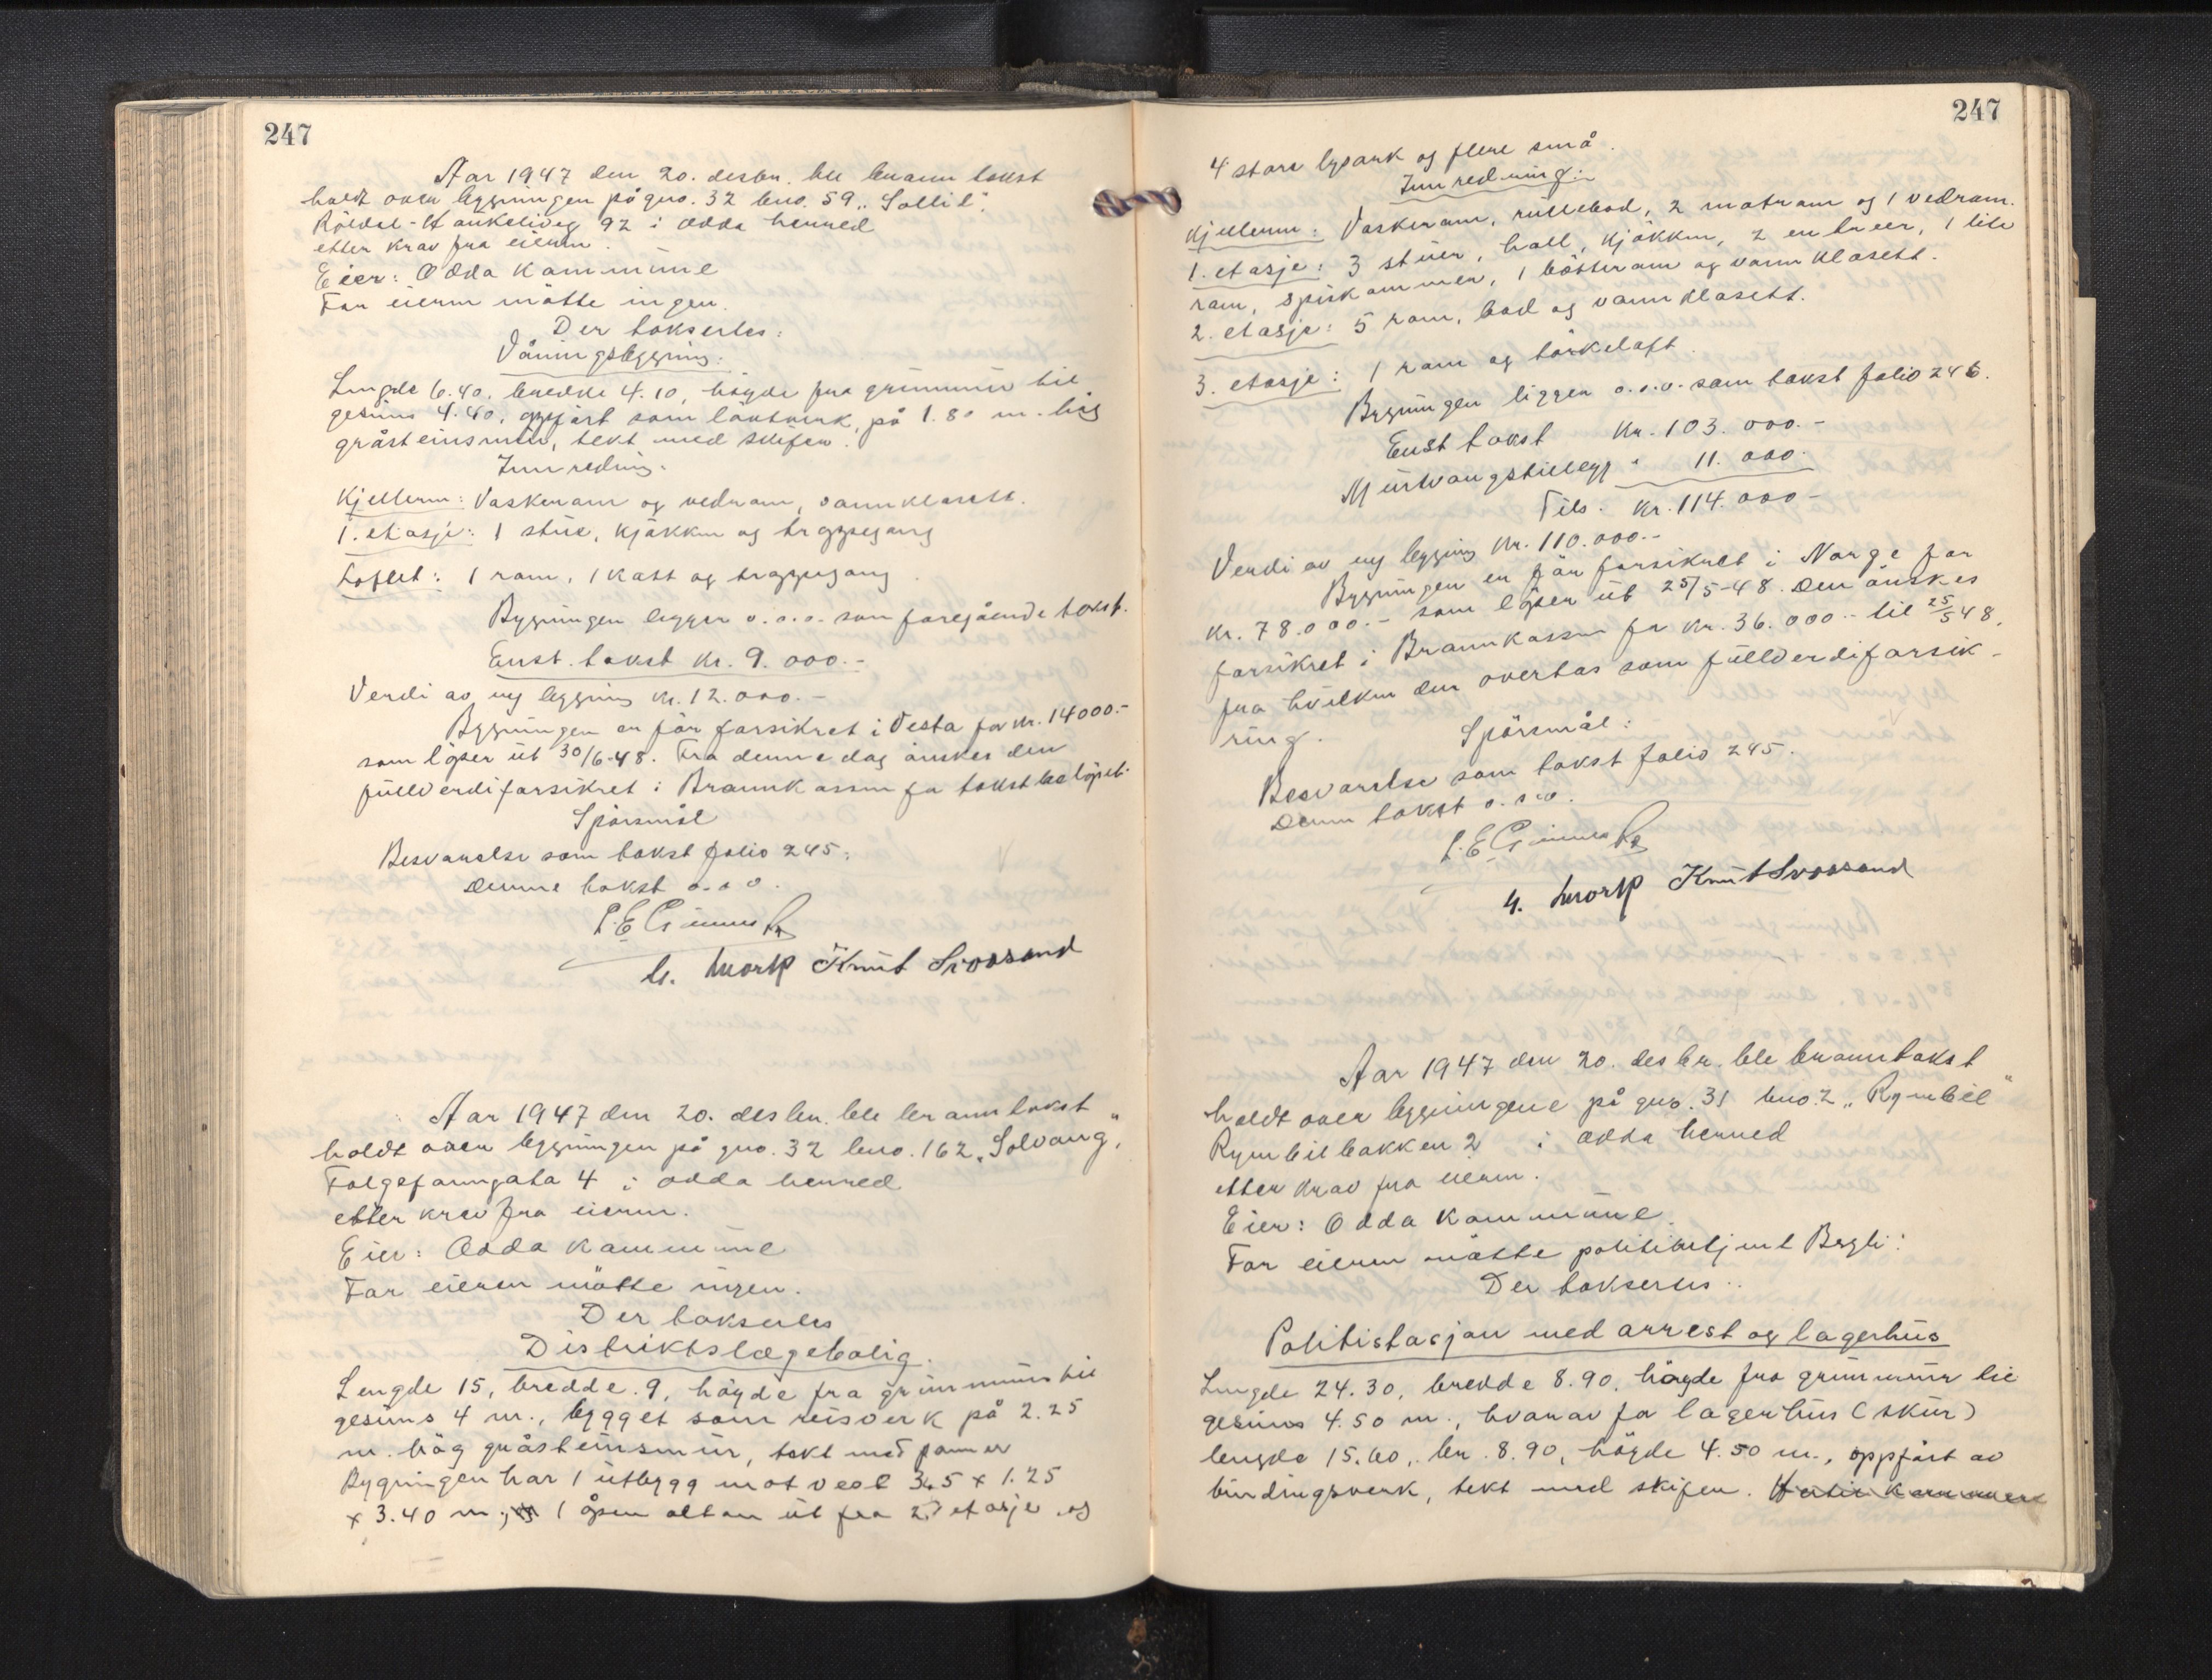 247
Aar 1947 den 20. desbr. ble brann takst
holdt over bygningen på gno. 32 bno. 59 „Sollil".
Röldal-Haukeliveg 92 i Odda herred
etter krav fra eieren.
Eier: Odda Kommune
For eieren mötte ingen.
Der taksertes:
Våningsbygning:
Lengde 6.40, bredde 4.10, högde fra grunnmur til
gesims 4.40, oppfört som laftverk, på 1.80 m. hög
gråsteinsmur, tekt med skifer.
Innredning.
Kjelleren: Vaskerom og vedrom, vannklosett.
1. etasje: 1 stue, kjökken og trappegang
Loftet: 1 rom, 1 kott og trappegang.
Bygningen ligger o.s.v. som foregående takst.
Enst. takst kr. 9.000.-
Verdi av ny bygning kr. 12.000.-
Bygningen er för forsikret i Vesta for kr. 14000.-
som löper ut 30/6-48. Fra denne dag önskes den
fullverdiforsikret i Brannkassen for takstbelöpet.
Spörsmål
Besvarelse som takst folio 245.
Denne takst o.s.v.
Knut Svossand
Aar 1947 den 20. desbr. ble brann takst
holdt over bygningen på gno. 32 bno. 162 „Solvang",
Folgefonngata 4 i Odda herred
etter krav fra eieren.
Eier: Odda Kommune
For eieren mötte ingen.
Der taksertes
Distriktslegebolig.
Lengde 15, bredde 9, högde fra grunnmur til
gesims 4 m., bygget som reisverk på 2.25
m. hög gråsteinsmur, tekt med panner
Bygningen har 1 utbygg mot vest 3.5 x 1.25
x 3.40 m., 1 åpen altan ut fra 2. etasje og
247
4 store lysark og flere små.
Innredning:
Kjelleren: Vaskerom, rullebod, 2 matrom og 1 vedrom.
1. etasje: 3 stuer, hall, kjökken, 2 entreer, 1 lite
rom, spiskammer, 1 bötterom og vann klosett.
2. etasje: 5 rom, bad og vannklosett.
3. etasje: 1 rom og törkeloft.
Bygningen ligger o.s.v. som takst folio 246.
Enst takst kr. 103.000.-
Murtvangstillegg " 11.000.
Tils. kr. 114.000-
Verdi av ny bygning kr. 110.000.-
Bygningen er för forsikret i Norge for
kr. 78.000.- som löper ut 25/5-48. Den önskes
forsikret i Brannkassen for kr. 36.000.- til 25/5 48,
fra hvilken den overtas som fullverdiforsik-
ring.
Spörsmål:
Besvarelse som takst folio 245.
Denne takst o.s.v.
Knut Svossand
Aar 1947 den 20. desbr. ble branntakst
holdt over bygningene på gno. 31 bno. 2 „Rymbil"
Rymbilbakken 2 i Odda herred
etter krav fra eieren.
Eier: Odda Kommune.
For eieren mötte politibetjent Bagli:
Der taksertes:
Politistasjon med arrest og lagerhus
Lengde 24.30, bredde 8.90, högde fra grunnmur til
gesims 4.50 m., hvorav for lagerhus (skur)
lengde 15.60, br. 8.90, högde 4.50 m., oppfört av
bindingsverk, tekt med skifer.